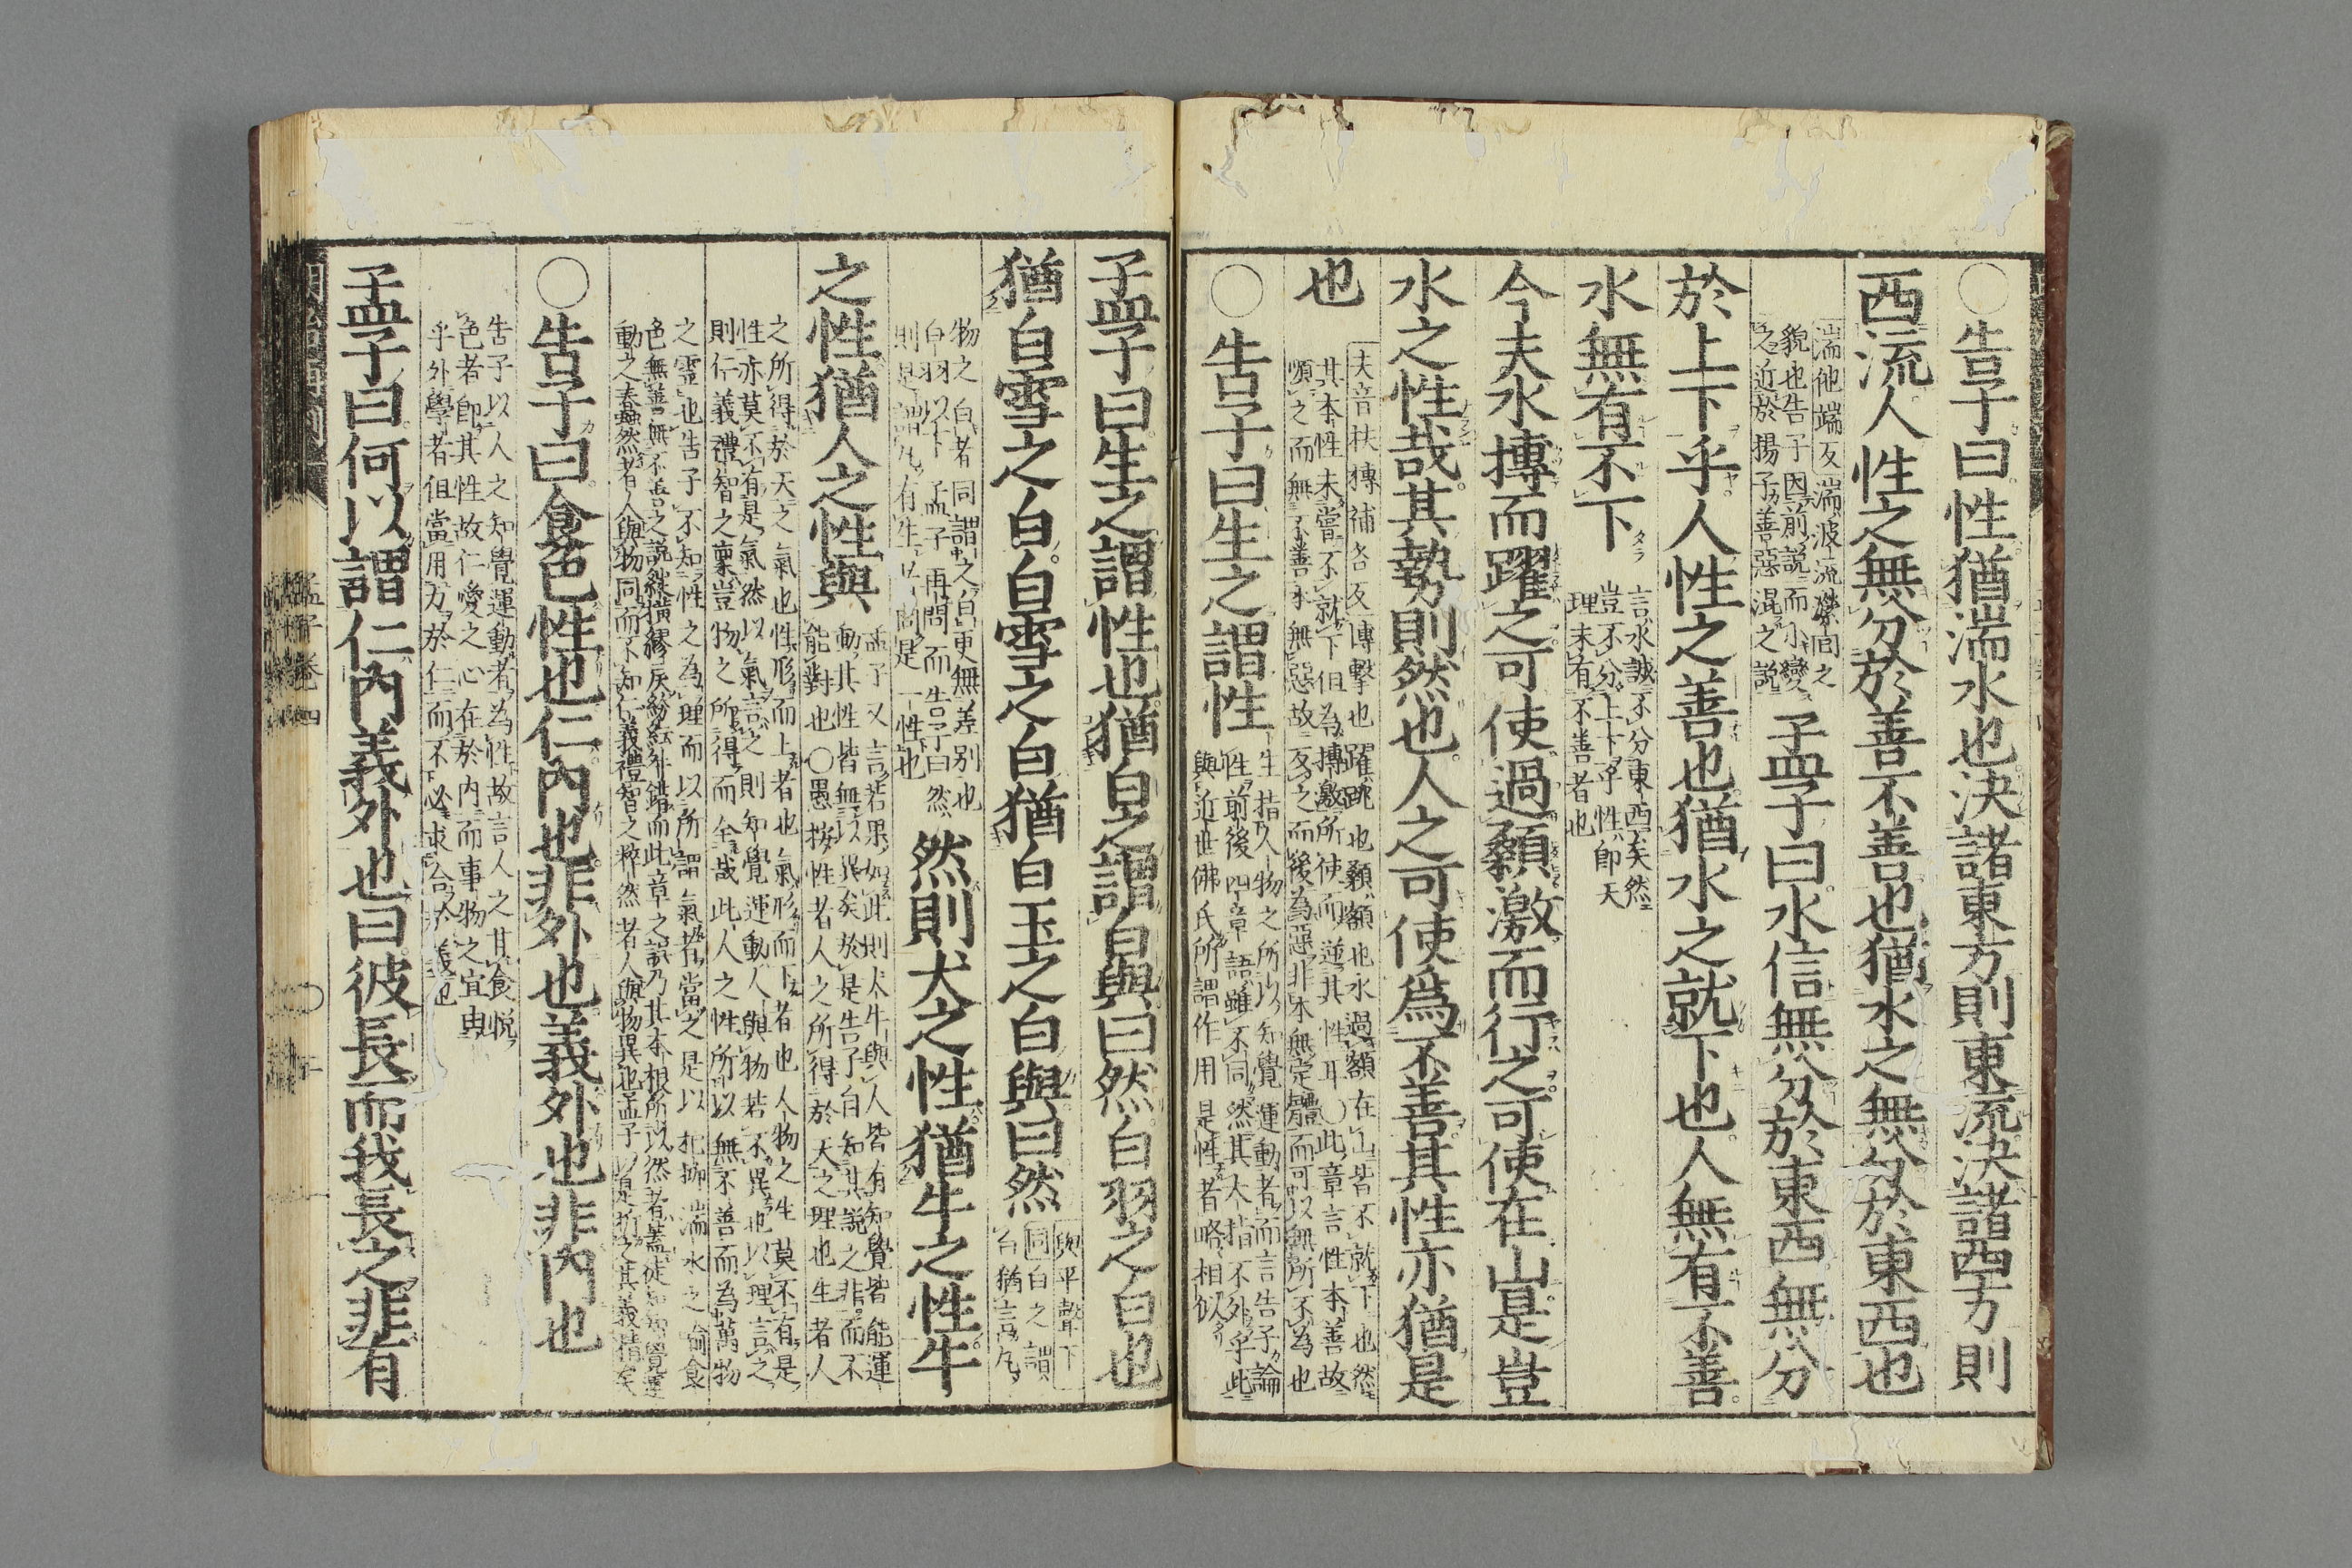 〇告子曰性猶湍水也決諸東方則東流決諸西方則
西流人性之無分於善不善也猶水之無分於東西也
湍他端反湍波流瀠回之
貌也告子因前說而小變
之近於揚子善惡混之說
孟子曰水信無分於東西無分
於上下乎人性之善也猶水之就下也人無有不善
水無有不下
言水誠不分東西矣然
豈不分上下乎性即天
理未有不善者也
今夫水搏而躍之可使過顙激而行之可使在山是豈
水之性哉其勢則然也人之可使為不善其性亦猶是
也
夫音扶搏補各反搏擊也躍跳也顙額也水過額在山皆不就下也然
其本性未嘗不就下但為搏激所使而逆其性耳〇此章言性本善故
順之而無不善本無惡故反之而後為惡非本無定體而可以無所不為也
〇告子曰生之謂性
生指人物之所以知覺運動者而言告子論
性前後四章語雖不同然其大指不外乎此
與近世佛氏所謂作用是性者略相似
孟子曰生之謂性也猶白之謂白與曰然白羽之白也
猶白雪之白白雪之白猶白玉之白與曰然
與平聲下
同白之謂
白猶言凡
物之白者同謂之白更無差別也
白羽以下孟子再問而告子曰然
則是謂凡有生者同是一性也
然則犬之性猶牛之性牛
之性猶人之性與
孟子又言若果如此則犬牛與人皆有知覺皆能運
動其性皆無以異矣於是告子自知其說之非而不
能對也〇愚按性者人之所得於天之理也生者人
之所得於天之氣也性形而上者也氣形而下者也人物之生莫不有是
性亦莫不有是氣然以氣言之則知覺運動人與物若不異也以理言之
則仁義禮智之稟豈物之所得而全哉此人之性所以無不善而為萬物
之靈也告子不知性之為理而以所謂氣者當之是以杞柳湍水之喻食
色無善無不善之說縱橫繆戾紛紜舛錯而此章之誤乃其本根所以然者蓋徒知知覺運
動之蠢然者人與物同而不知仁義禮智之粹然者人與物異也孟子以是折之其義精矣
〇告子曰食色性也仁內也非外也義外也非內也
告子以人之知覺運動者為性故言人之甘食悅
色者即其性故仁愛之心在於內而事物之宜由
乎外學者但當用力於仁而不必求合於義也
孟子曰何以謂仁內義外也曰彼長而我長之非有
孟子卷四